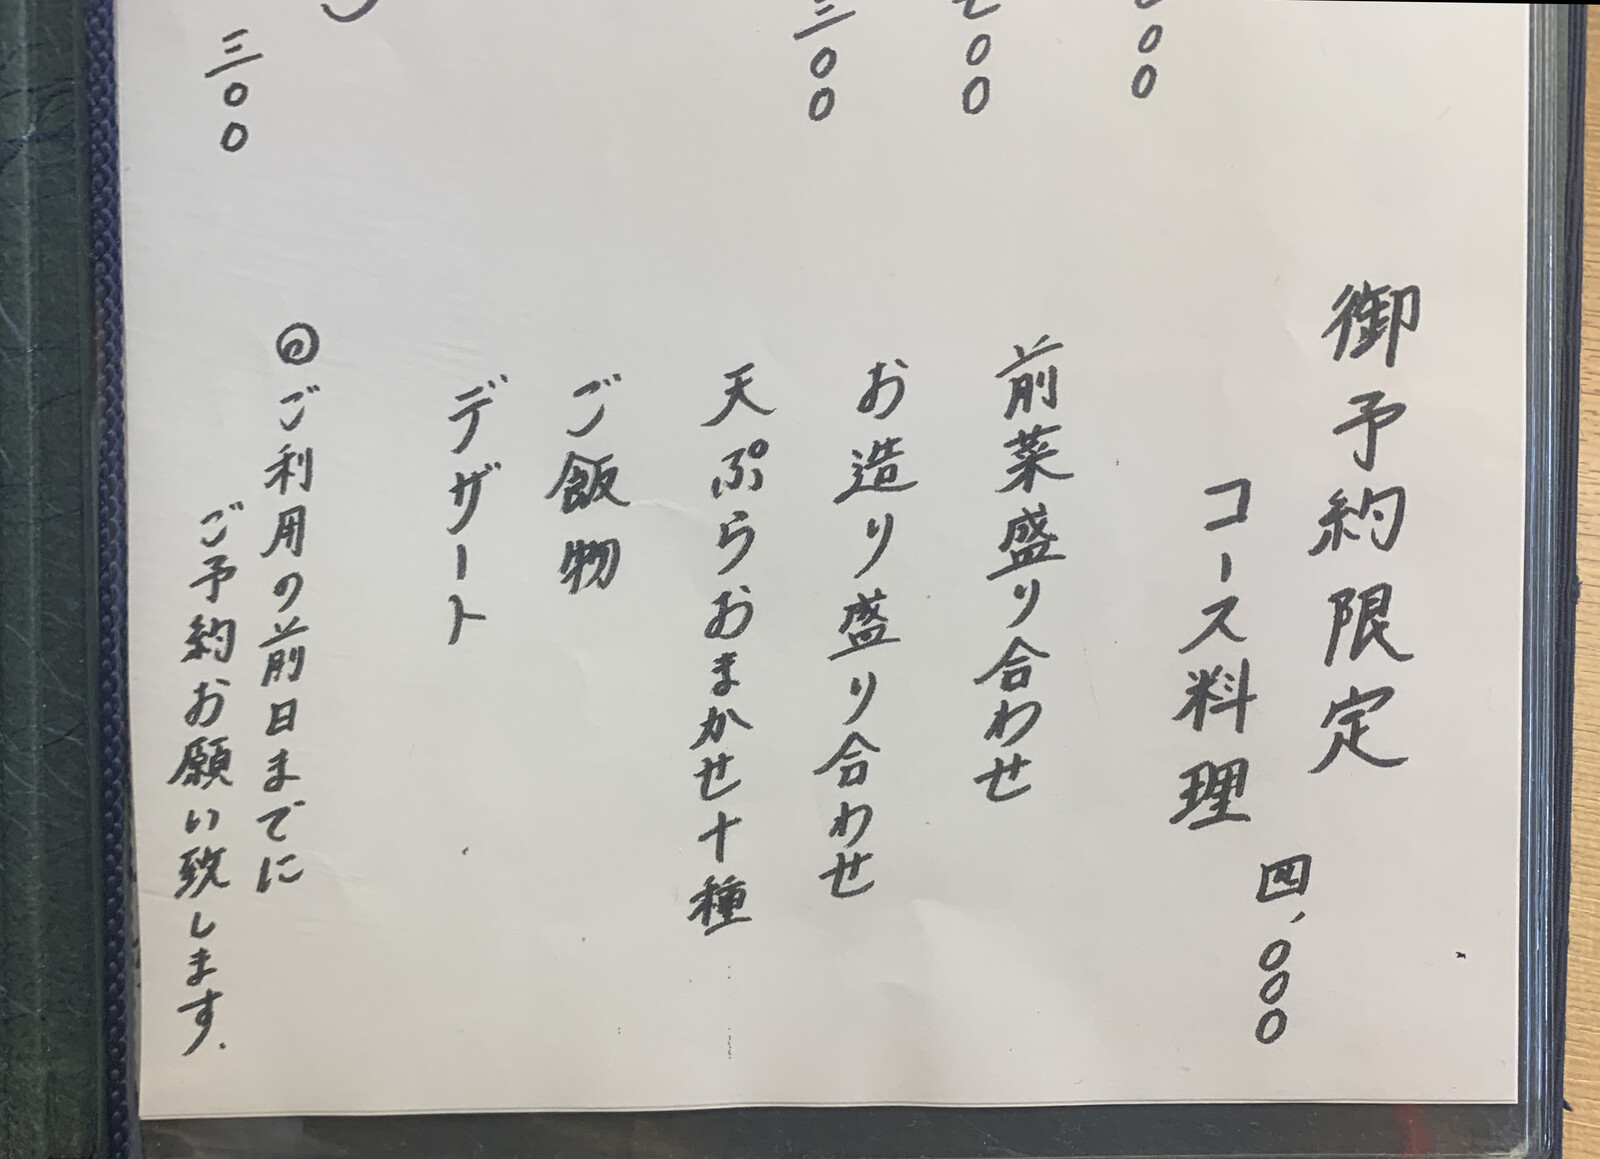 00
00
三00
三00
御予約限定
コース料理
四,000
前菜盛り合わせ
お造り盛り合わせ
天ぷらおまかせ十種
ご飯物
デザート
◎ご利用の前日までに
ご予約お願い致します.